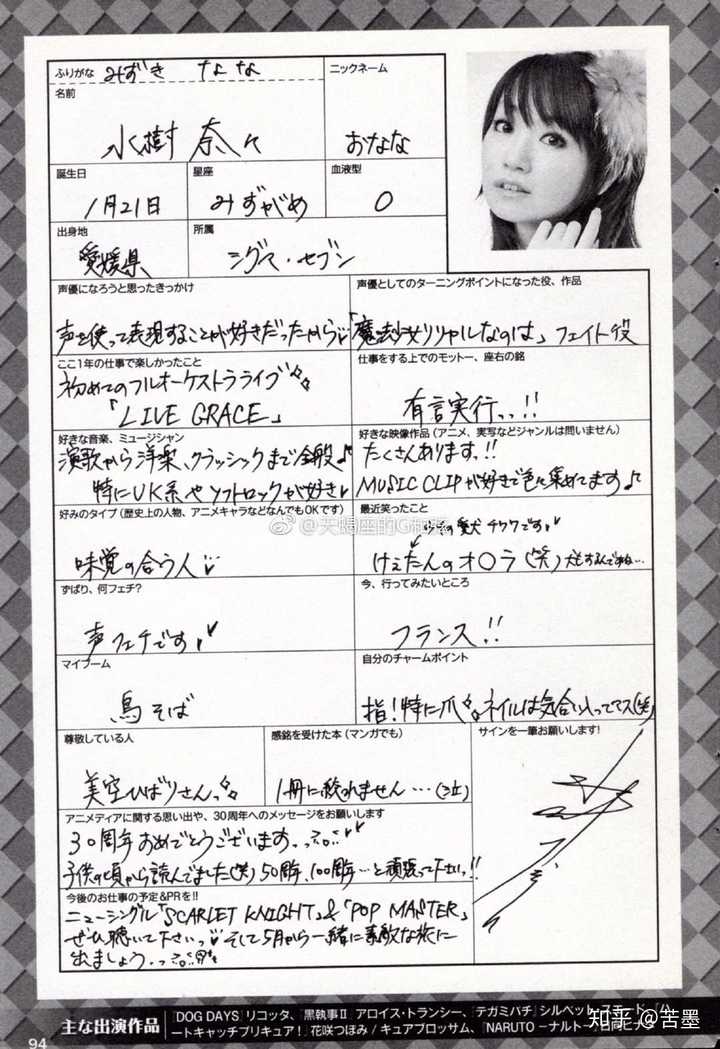 ふりがな みずき なな
名前
水樹 奈々
ニックネーム
おなな
誕生日
1月21日
星座
みずがめ
血液型
O
出身地
愛媛県
所属
シグマ・セブン
声優になろうと思ったきっかけ
声を使って表現することが好きだったから
声優としてのターニングポイントになった役、作品
「魔法少女リリカルなのは」フェイト役
ここ1年の仕事で楽しかったこと
初めてのフルオーケストラライブ
「LIVE GRACE」
仕事をする上でのモットー、座右の銘
有言実行っっ!!
好きな音楽、ミュージシャン
演歌から洋楽、クラシックまで全般♪
特にUK系やソフトロックが好き
好きな映像作品(アニメ、実写などジャンルは問いません)
たくさんあります。!!
MUSIC CLIPが好きで色々集めてます♪
好みのタイプ(歴史上の人物、アニメキャラなどなんでもOKです)
味覚の合う人
最近笑ったこと
愛犬 チワワです
けぇたんのオ〇ラ(笑)
ずばり、何フェチ?
声フェチです
今、行ってみたいところ
フランス!!
マイブーム
鳥そば
自分のチャームポイント
指!特に爪 ネイルは気合い入ってマス(笑)
尊敬している人
美空ひばりさんっ
感銘を受けた本(マンガでも)
1冊に絞れません…(泣)
サインを一筆お願いします!
アニメディアに関する思い出や、30周年へのメッセージをお願いします
30周年おめでとうございます。
子供の頃から読んでました(笑)50周年、100周年…と頑張って下さいっ!!
今後のお仕事の予定&PRを!!
ニューシングル「SCARLET KNIGHT」&「POP MASTER」
ぜひ聴いて下さいっ そして5月から一緒に素敵な旅に
出ましょう。っ
主な出演作品
『DOG DAYS』リコッタ、『黒執事Ⅱ』アロイス・トランシー、『テガミバチ』シルベット・スエード、『ハ
ートキャッチプリキュア!』花咲つぼみ/キュアブロッサム、『NARUTO-ナルト-』日向ヒナタ
94
@天蝎座的G
知乎 @苦墨